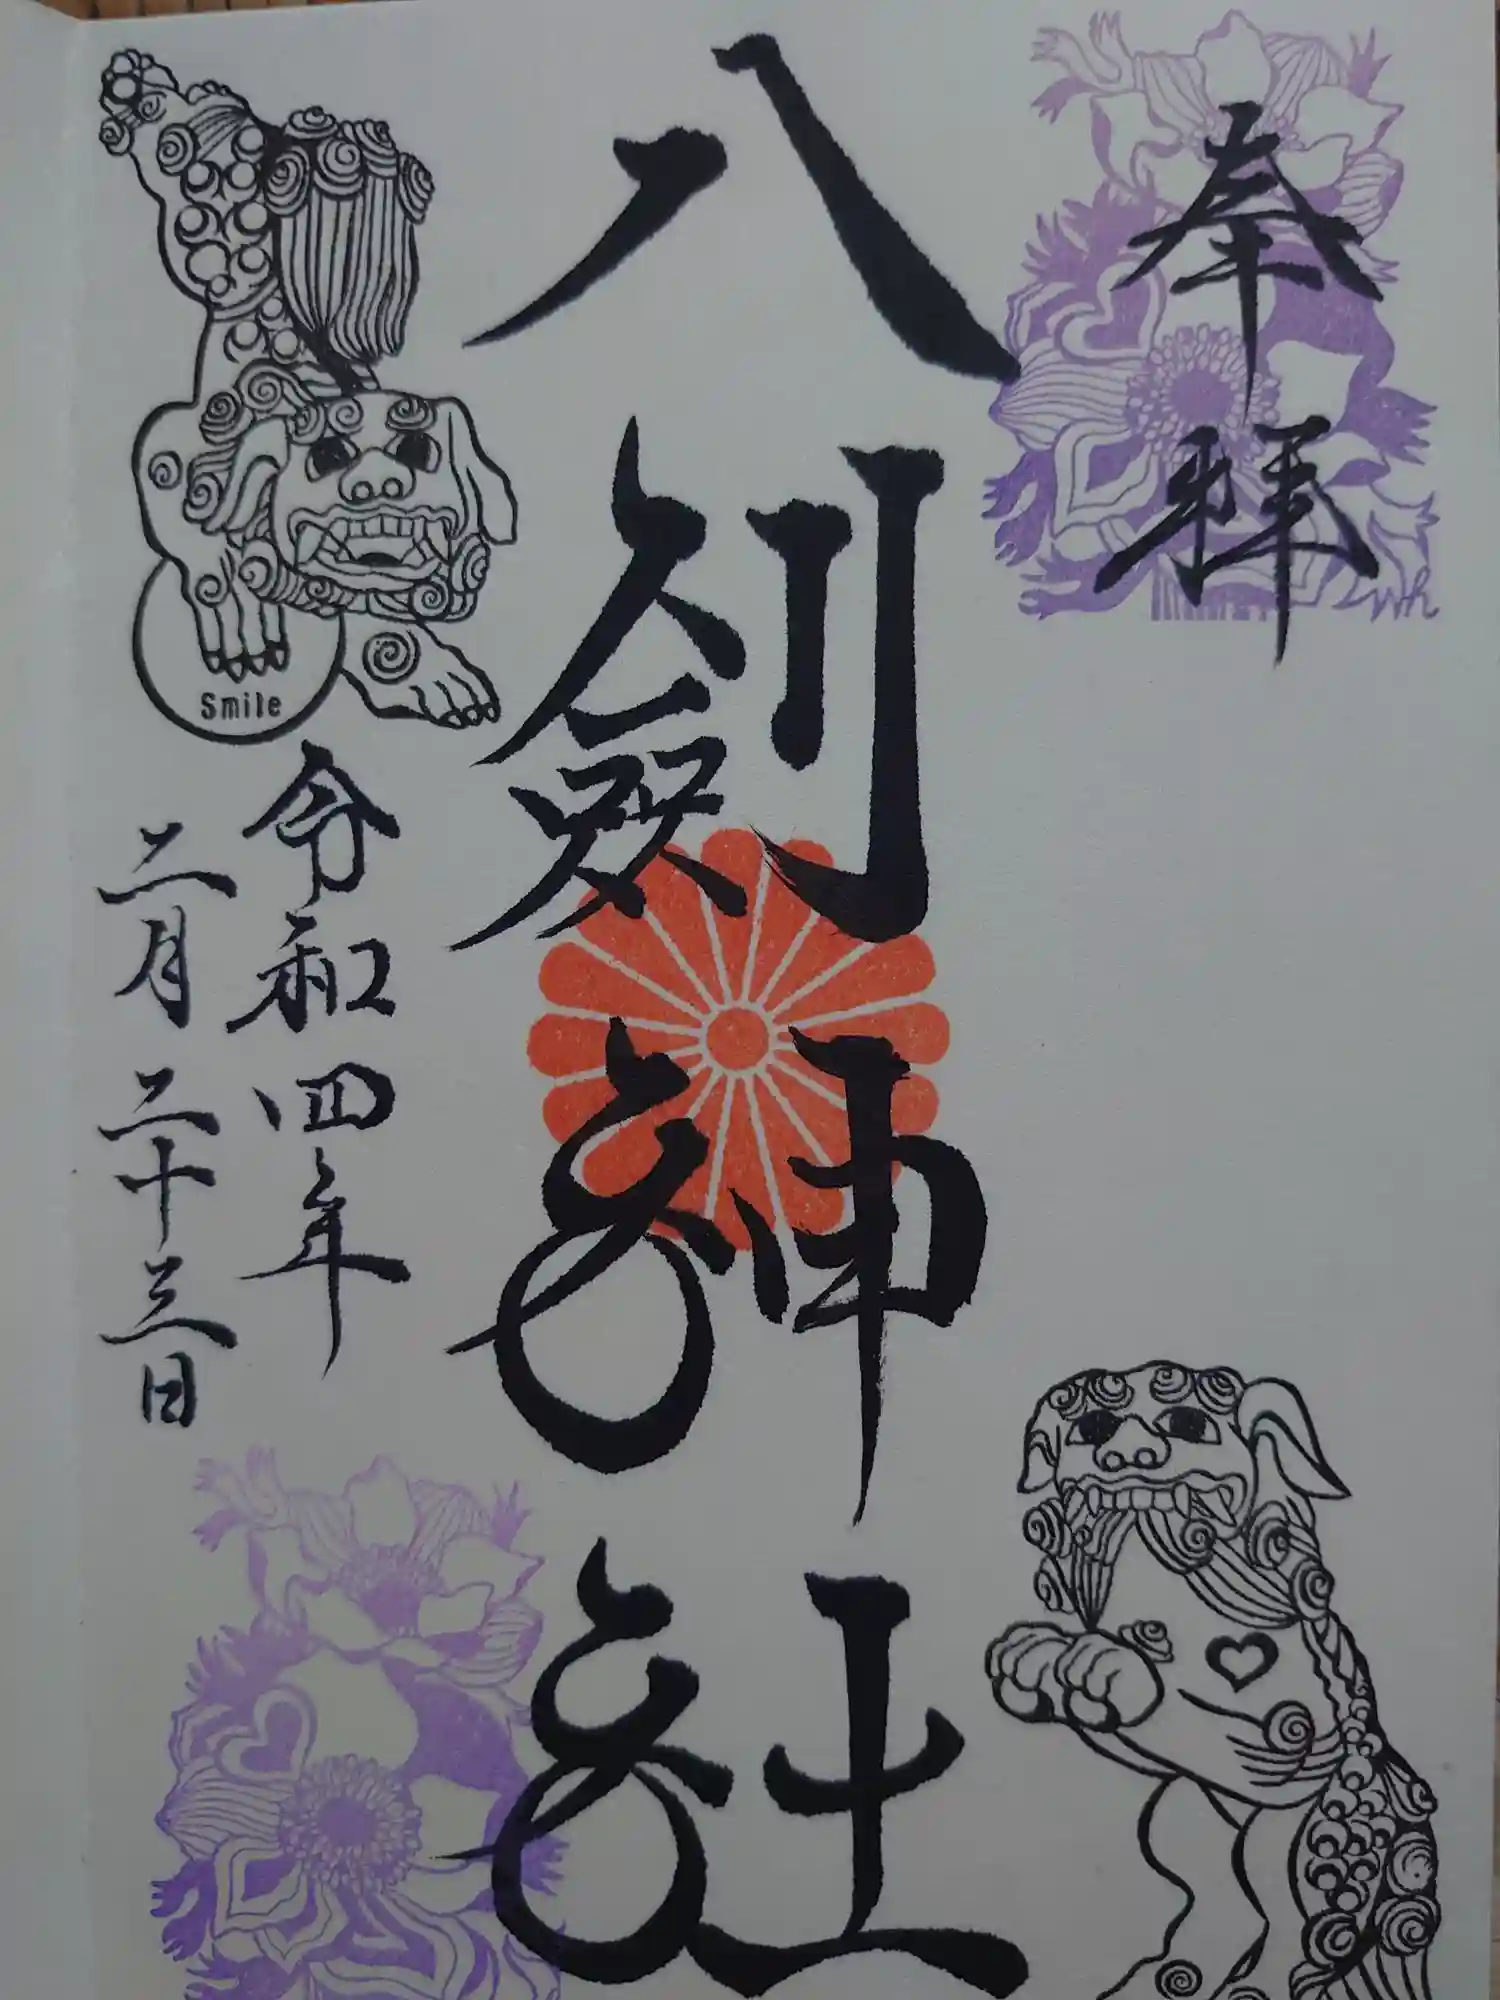 奉拝
八剱神社
令和四年
二月二十三日
Smile